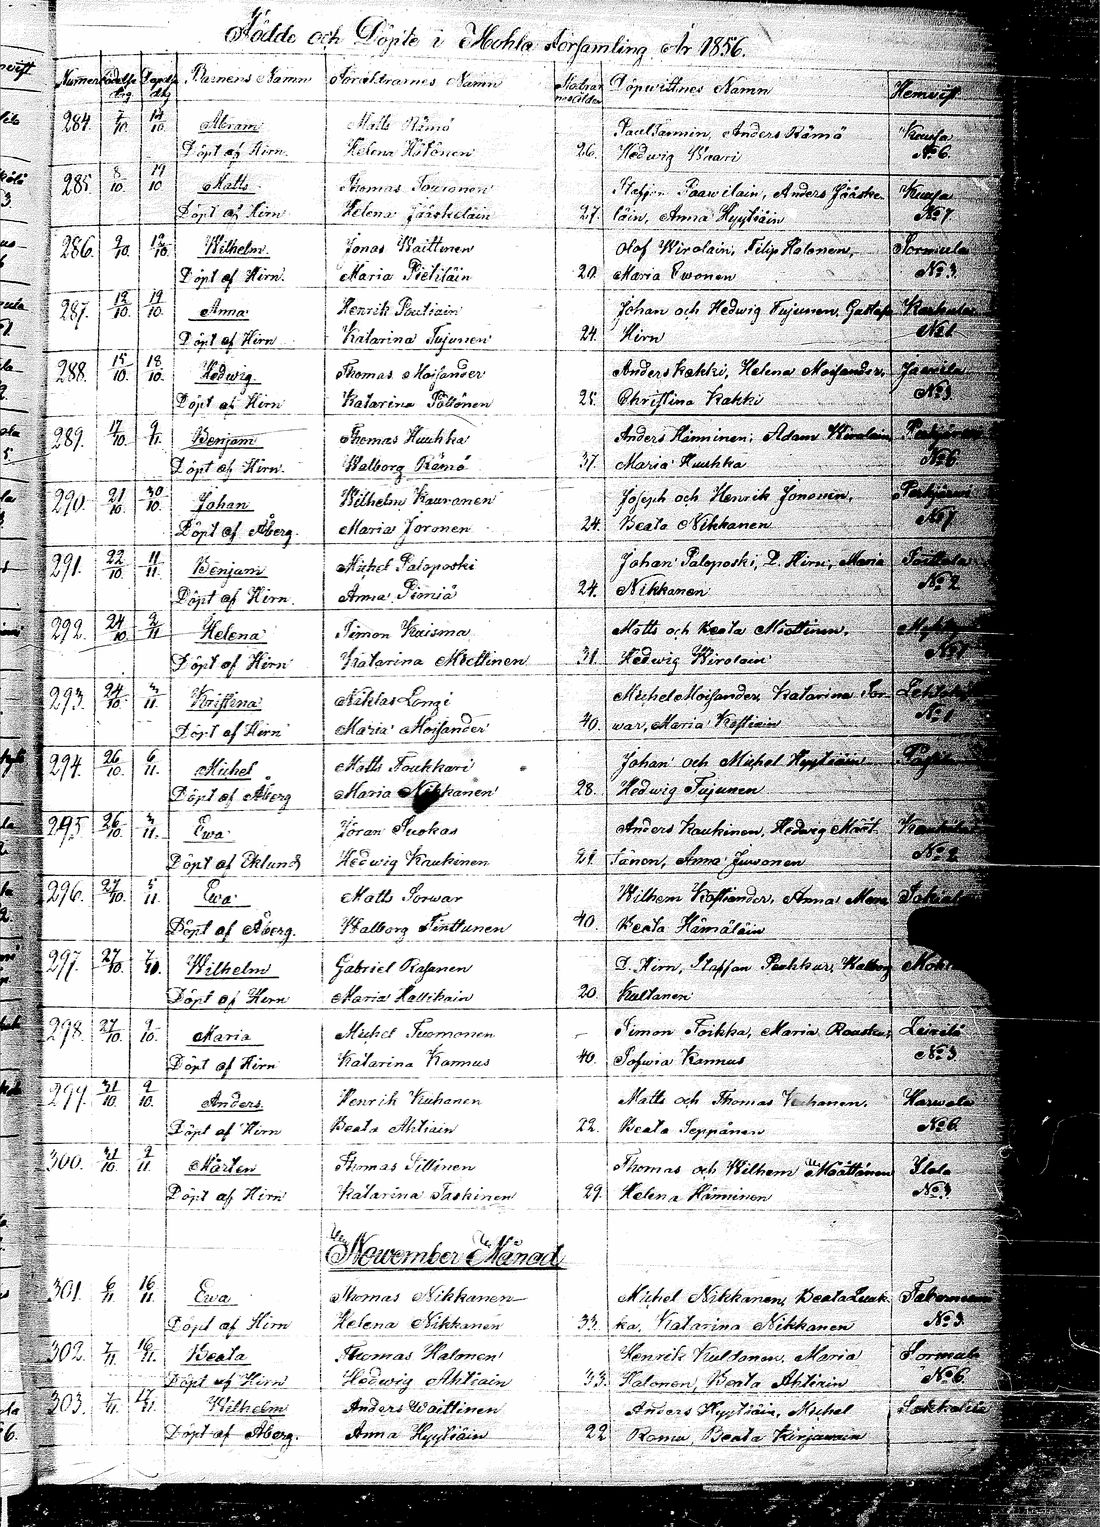 Födde och Döpte i Mohla Församling År 1856.
Numer Födelse dag Döpelse dag Barnens Namn Föräldrarnes Namn Modrens ålder Döpvittnes Namn Hemvist
284. 7/10 12/10 Abram Matts Rämö Paul Tannin, Anders Rämö Kuusa
Döpt af Hirn. Helena Hötönen 26. Hedwig Waari No 6.
285. 8/10 19/10 Matts Thomas Touronen Staffan Paawilain, Anders Jääske- Kuusa
Döpt af Hirn Helena Jääskeläin 27. läin, Anna Hyytiäin No 7.
286. 9/10 12/10 Wilhelm Jonas Waittinen Olof Wirolain, Filip Halonen, Sormula
Döpt af Hirn. Maria Pietiläin 20. Maria Ewonen No 3.
287. 12/10 19/10 Anna Henrik Poutiain Johan och Hedwig Tujunen, Gustafva Karhula
Döpt af Hirn Katarina Tujunen 24. Hirn No 1.
288. 15/10 18/10 Hedwig Thomas Moisander Anders Kakki, Helena Moisander, Jaarila
Döpt af Hirn Katarina Pöllönen 25. Christina Kakki No 3.
289. 17/10 9/11 Benjam Thomas Huuhka Anders Hänninen, Adam Wirolain, Perkjärwi
Döpt af Hirn. Walborg Rämö 37. Maria Huuhka No 6
290. 21/10 30/10 Johan Wilhelm Kauranen Joseph och Henrik Jononen, Perkjärwi
Döpt af Åberg. Maria Joronen 24. Beata Nikkanen No 7
291. 22/10 11/11 Benjam Michel Paloposki Johan Paloposki, D. Hirn, Maria
Döpt af Hirn. Anna Pimiä 24. Nikkanen No 2.
292. 24/10 2/11 Helena Simon Kaisma Matts och Beata Miettinen,
Döpt af Hirn Katarina Miettinen 31. Hedwig Wirolain No 1
293. 24/10 3/11 Kristina Niklas Longi Michel Moisander, Katarina Sor-
Döpt af Hirn Maria Moisander 40. war, Maria Kostiain No 1.
294. 26/10 6/11 Michel Matts Toukkari Johan och Michel Hyytiäin
Döpt af Åberg Maria Nikkanen 28. Hedwig Tujunen
295 26/10 3/11 Ewa Göran Suokas Anders Kaukinen, Hedwig Märt-
Döpt af Eklund Hedwig Kaukinen 21. tänen, Anna Juwonen No 2.
296. 27/10 5/11 Ewa Matts Sorwar Wilhem Kostiander, Anna Maria
Döpt af Åberg. Walborg Tinttunen 40. Beata Hämäläin
297. 27/10 7/10. Wilhelm Gabriel Rasanen D. Hirn, Staffan Penhkur, Walborg Mohla
Döpt af Hirn Maria Hallikain 20 Kultanen
298. 27/10 9/10. Maria Michel Tuomonen Simon Toikka, Maria Raasku,
Döpt af Hirn Katarina Kannus 40. Sofwia Kannus No 3
299. 31/10 2/10. Anders Henrik Kuhanen Matts och Thomas Kuhanen, Harwola
Döpt af Hirn Beata Ahtiain 22. Beata Seppänen No 6.
300. 31/10 2/11. Mårten Thomas Pillinen Thomas och Wilhem Määttänen Ilola
Döpt af Hirn Katarina Taskinen 29. Helena Hänninen No 3
November Månad
301. 6/11. 16/11. Ewa Thomas Nikkanen Michel Nikkanen, Beata Luuk-
Döpt af Hirn Helena Nikkanen 33. ka, Katarina Nikkanen No 3.
302. 7/11 16/11. Beata Thomas Halonen Henrik Kultanen, Maria Sormula
Döpt af Hirn Hedwig Ahtiain 33. Halonen, Beata Ahtiain No 6.
303. 7/11. 17/11. Wilhelm Anders Waittinen Anders Hyytiäin, Michel Sokkala
Döpt af Åberg. Anna Hyytiäin 22 Romu, Beata Kirjawain